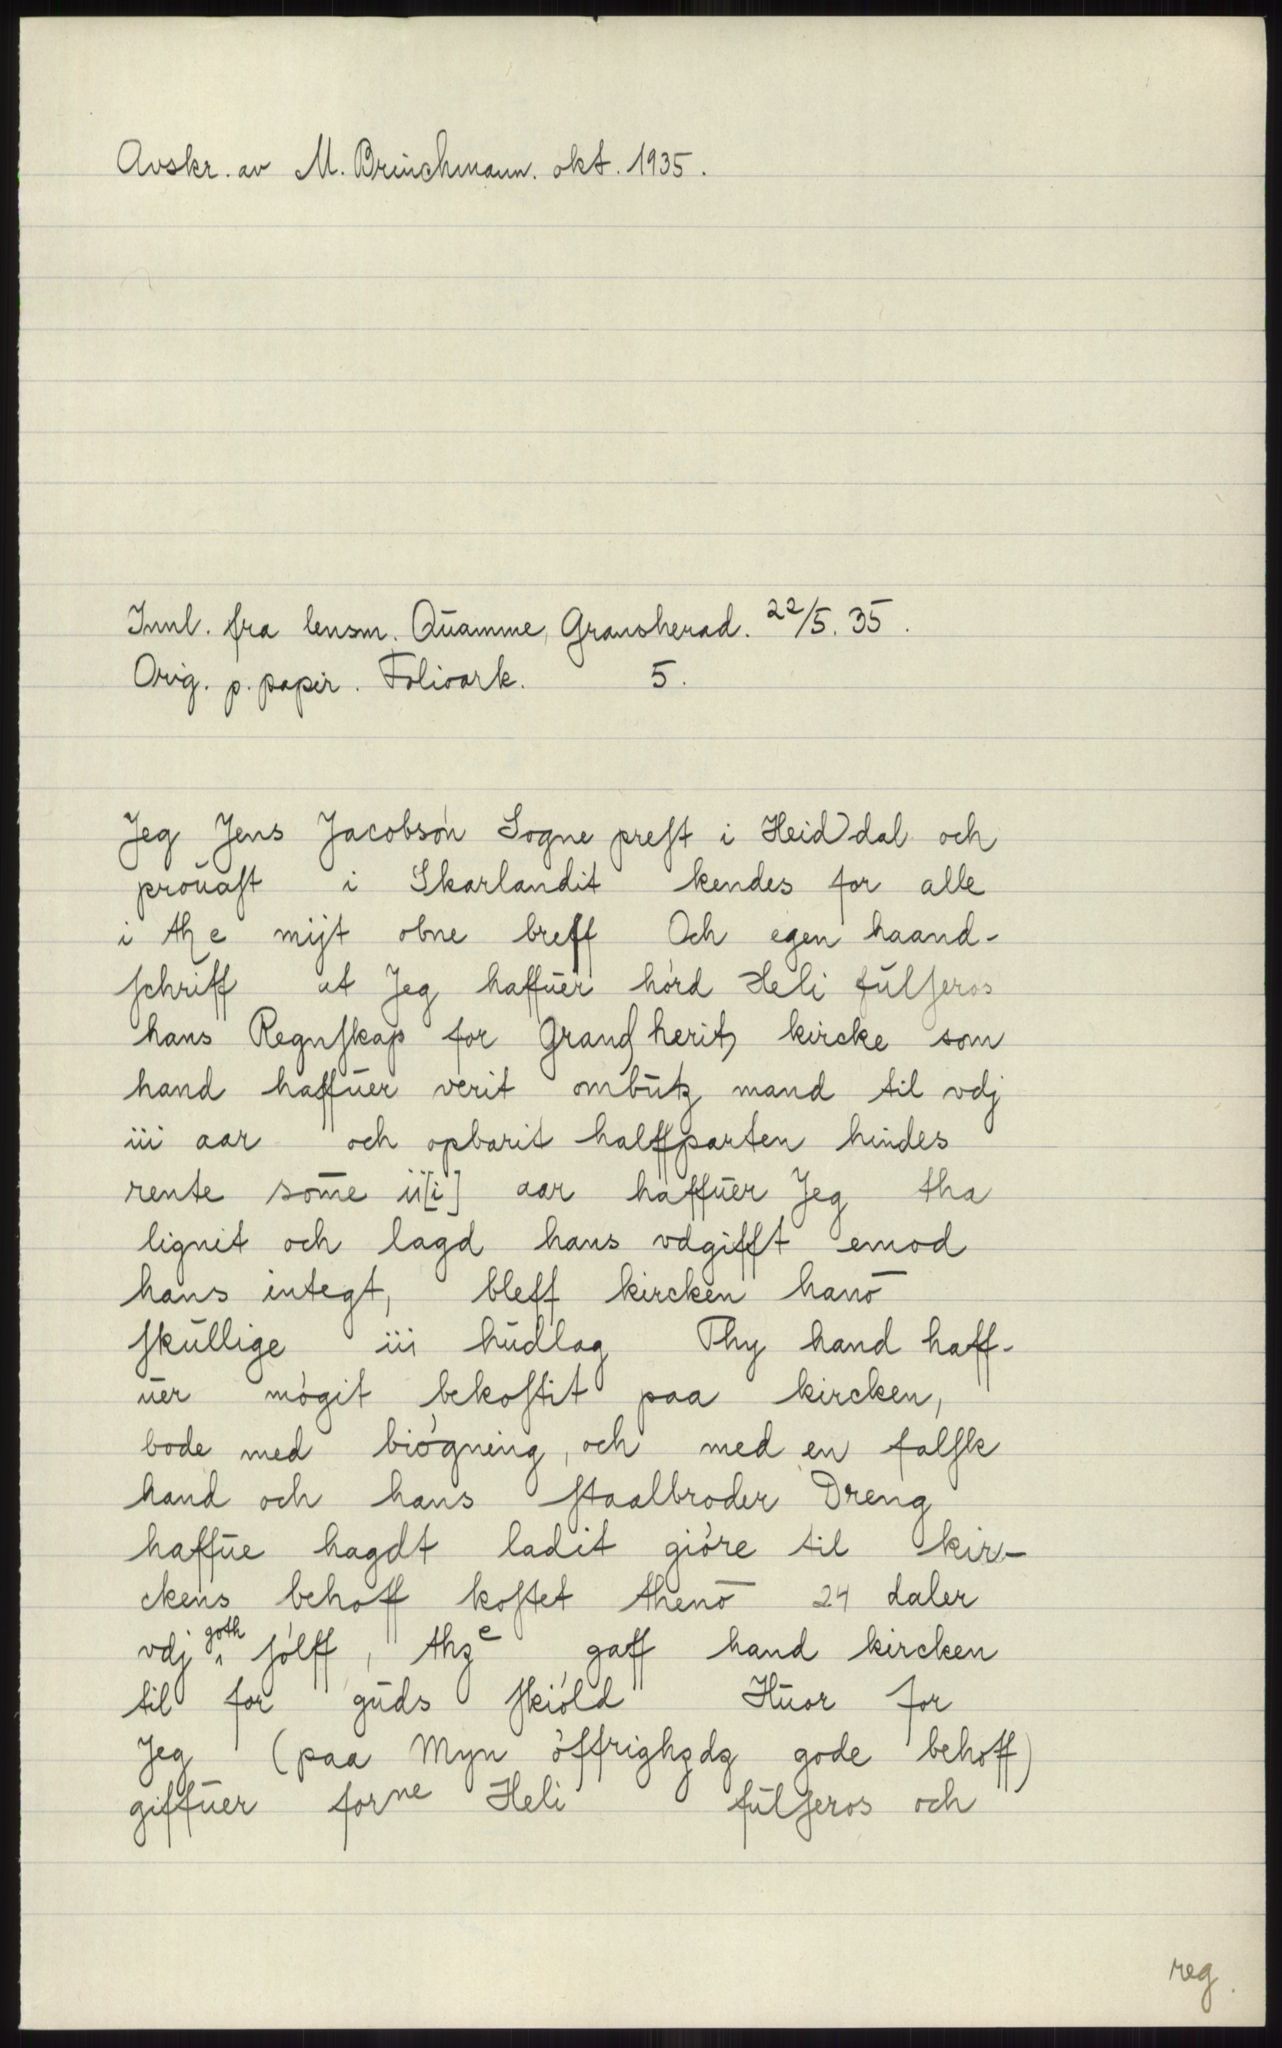 Avskr. av M. Brinchmann. okt. 1935.
Innl. fra lensm. Quamme, Gransherad. 22/5. 35.
Orig. p. papir. Folioark. 5.
Jeg Jens Jacobsøn Sogne preſt i Heiddal och
prouaſt i Skarlandit kendes for alle
i thȝe mijt obne breff Och egen haand-
ſchriff at Jeg haffuer hørd Heli fulſeros
hans Regnſkap for Granſherit kircke som
hand haffuer verit ombutz mand til vdj
iii aar och opbarit halffparten hindes
rente som̄e ii[i] aar haffuer Jeg tha
lignit och lagd hans vdgifft emod
hans integt, bleff kircken hano̅
ſkullige iii hudlag Thy hand haff-
uer møgit bekoſtit paa kircken,
bode med biøgning, och med en falſk
hand och hans ſtaalbroder Dreng
haffue hagdt ladit giøre til kir-
ckens behoff koſtet theno̅ 24 daler
vdj goth ſølff, thȝe gaff hand kircken
til for guds ſkiøld Huor for
Jeg (paa Myn øffrighȝdȝ gode behoff)
giffuer forne Heli fulſeros och
reg.